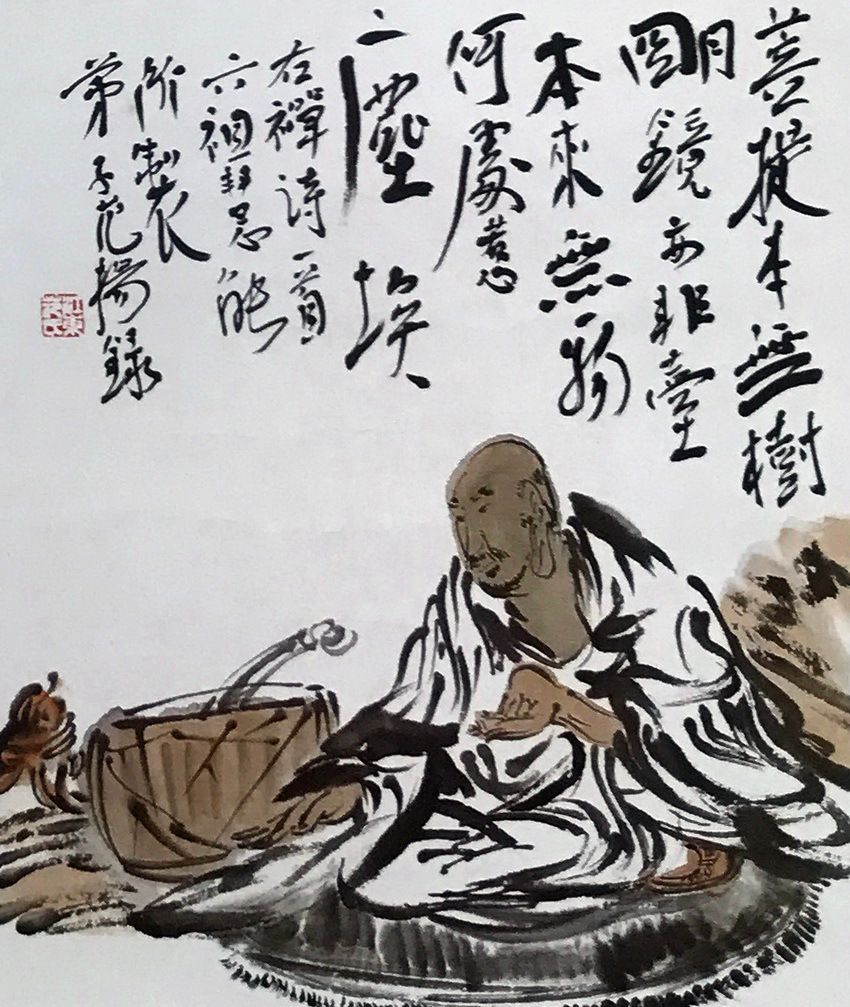 菩提本無樹
朙鏡亦非臺
本來無一物
何處惹
塵埃
右禪诗一首
六祖慧能
所製
弟子范揚錄